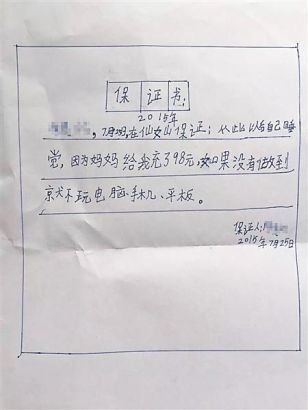 保证书:
2015年
,7月25在仙女山保证:从此以后自己睡
觉,因为妈妈给我充了98元,如果没有做到
就不玩电脑、手机、平板。
保证人:
2015年7月25日